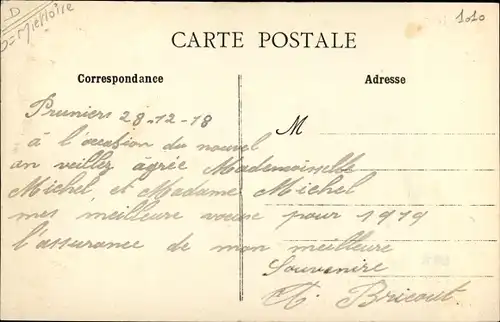 D
1010
CARTE POSTALE
Correspondance
Adresse
M
Pruniers 28-12-18
à l'occasion du nouvel
an veillez agrée Mademoiselle
Michel, et Madame Michel
mes meilleure voeuse pour 1919
l'assurance de mon meilleure
Souvenire
Bricout